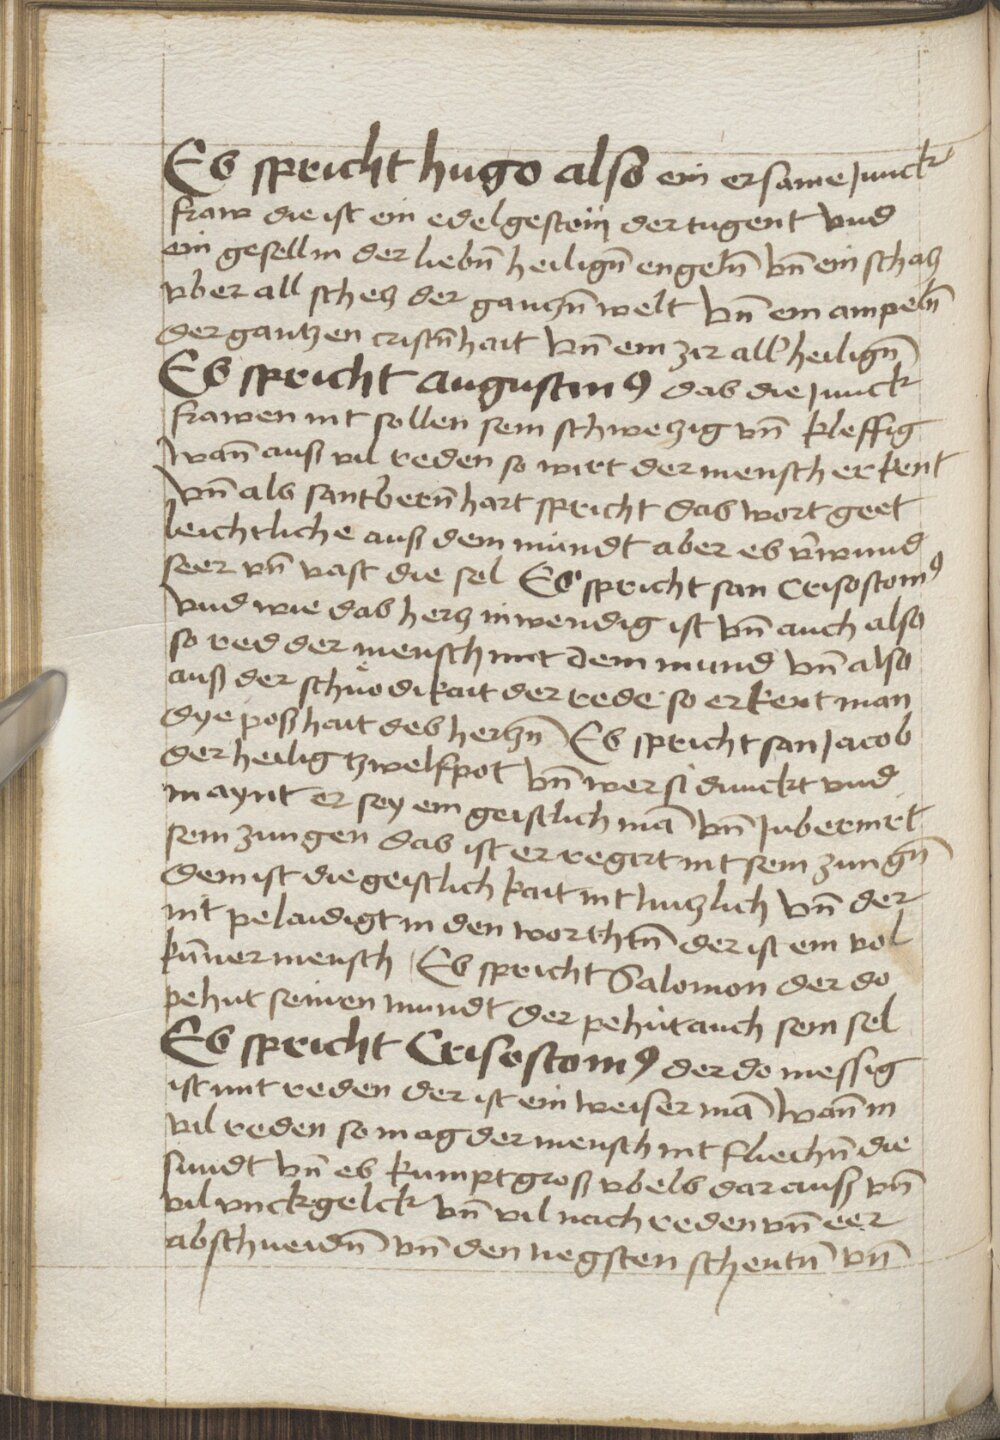 Es spricht hugo also ein ersame Junck
fraw die ist ein edelgestein der tugent vnd
ein gesellin der liebn̄ heilign̄ engeln̄ vn̄ ein schatz
vber all schetz der gantzn̄ welt vn̄ ein ampeln̄
der gantzen cristn̄hait vn̄ ein zir all heilign̄
Es spricht augustinꝰ das die Junck
frawen nit sollen sein schwetzig vn̄ kleffig
wan̄ auß vil reden so wirt der mensch erkent
vn̄ als sant bern̄hart spricht das wort geet
leichtliche auß dem mundt aber es v̄wund
seer vn̄ vast die sel Es spricht san Crisostomꝰ
vnd wie das hertz inwendig ist vn̄ auch also
so red der mensch mit dem mund vn̄ also
auß der schnödikait der rede so erkent man
dye poßhait des hertzn̄ Es spricht san Jacob
der heilig tzwelfpot vn̄ wer si dunckt vnd
maynt er sey ein geistlich mā vn̄ Jubermrt
sein zungen das ist er regirt nit sein zungn̄
dem ist die geistlichkait nit nutzlich vn̄ der
nit pelaidigt in den worthtn̄ der ist ein vol
kūner mensch Es spricht Salomon der do
pehut seinen mundt der pehut auch sein sel
Es spricht Crisostomꝰ der do messig
ist mit reden der ist ein weiser mā wan̄ in
vil reden so mag der mensch nit fliechn̄ die
sundt vn̄ es kumpt groß vbels darauß vn̄
vil vnckgelck vn̄ vil nachreden vn̄ eer
abschneidn̄ vn̄ den negsten schentn̄ vn̄